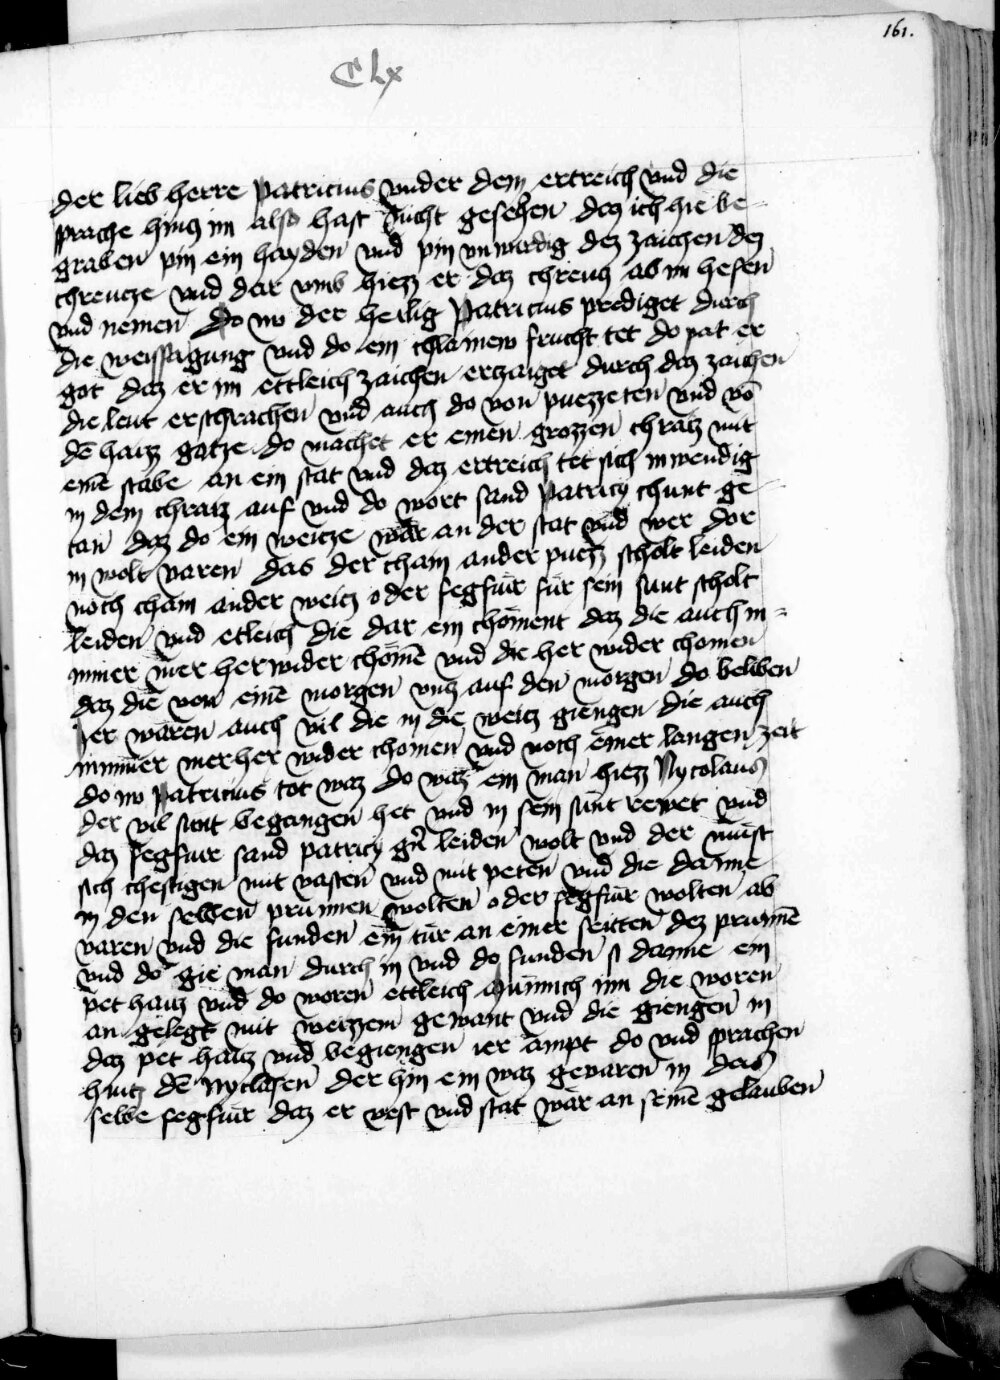 161.
CLx
der lieb herre Patricius vnder dem ertreich vnd die
sprache hincz im also hast nicht gesehen daz ich hie be-
graben pin ein hayden vnd pin vnwirdig dez zaichen dez
chreucze vnd dar vmb hiezz er daz chreucz ab im hefen
vnd nemen Do nu der heilig Patricius prediget durch
die weissagung vnd do ein chlainew frucht tet do pat er
got daz er im ettleich zaichen erczaiget durch daz zaichen
die leut erschrachen vnd auch do von puezzeten vnd võ
dē haizz gotze do machet er einen grozzen chraiz mit
einē stabe an ein stat vnd daz ertreich tet sich inwendig
in dem chraiz auf vnd do wort sand Patricy chunt ge-
tan daz do ein weicze wär an der stat vnd wer dor
in wolt varen das der cham ander puezz scholt leiden
noch cham ander weicz oder fegfiur für sein sunt scholt
leiden vnd etleich die dar ein choment daz die auch in-
mmer mer her wider chomē vnd die her wider chomen
daz die von einē morgen vncz auf den morgen do beliben
Jer waren auch vil die in die weicz giengen die auch
nimmer mer her wider chomen vnd noch einer langen zeit
do nu Patricius tot waz do waz ein man hiezz Nycolaus
der vil sunt begangen het vnd in sein sunt rewet vnd
daz fegfiur sand patricy gern leiden wolt vnd der must
sich chestigen mit vasten vnd mit peten vnd die danne
in den selben prunnen wolten oder fegfiur wolten ab
varen vnd die funden ein tür an einer seitten dez prunnē
vnd do gie man durch in vnd do funden si danne ein
pet haiz vnd do woren ettleich Münnich inn die woren
an gelegt mit weizzem gewant vnd die giengen in
daz pet haiz vnd begiengen ier ampt do vnd sprachen
hincz dē Nyclasen der hin ein waz gevaren in das
selbe fegfiur daz er vest vnd stat wär an seinē gelauben